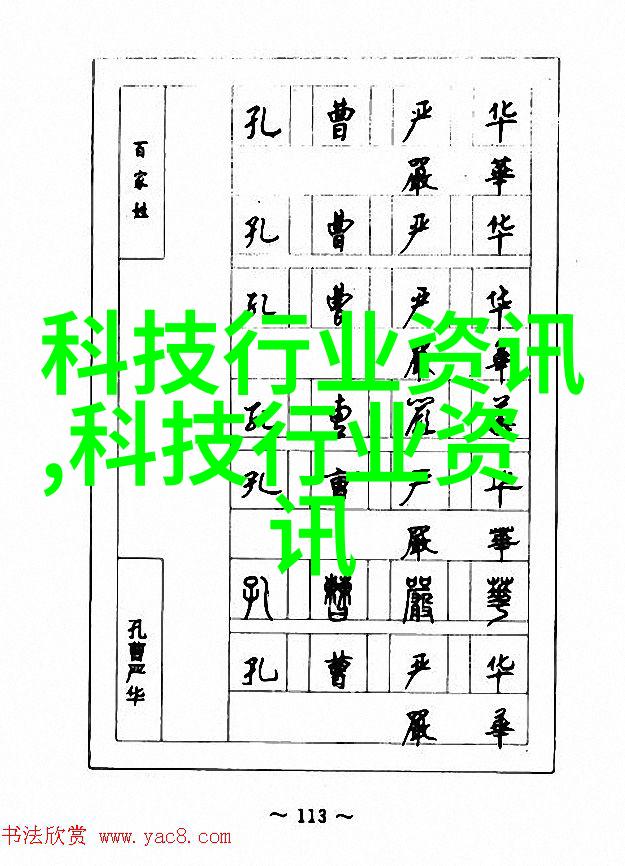 百家姓
孔 曹 严 华
嚴 華
孔 曹 严 华
孔 曹 严 华
嚴 華
孔 曹
孔 曹 严 华
嚴 華
孔 曹 嚴 華
孔 曹 严 华
嚴 華
孔曹严华
科技行业资讯
,科技行业资
讯
~ 113 ~
书法欣赏 www.yac8.com